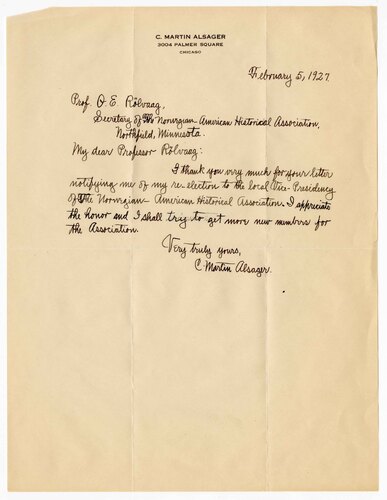 C. MARTIN ALSAGER
3004 PALMER SQUARE
CHICAGO
February 5, 1927
Prof. O. E. Rölvaag,
Secretary of The Norwegian-American Historical Association,
Northfield, Minnesota.
My dear Professor Rölvaag:
I thank you very much for your letter
notifying me of my re-election to the local Vice-Presidency
of The Norwegian-American Historical Association. I appreciate
the honor and I shall try to get more new members for
the Association.
Very truly yours,
C. Martin Alsager.